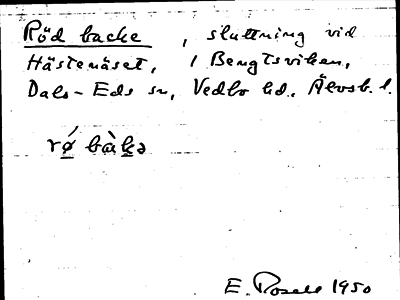 Röd backe, sluttning vid
Hästenäset, i Bengtsviken,
Dals-Eds sn, Vedbo hd. Älvsb. l.
rǿ bàkə
E. Rosell 1950